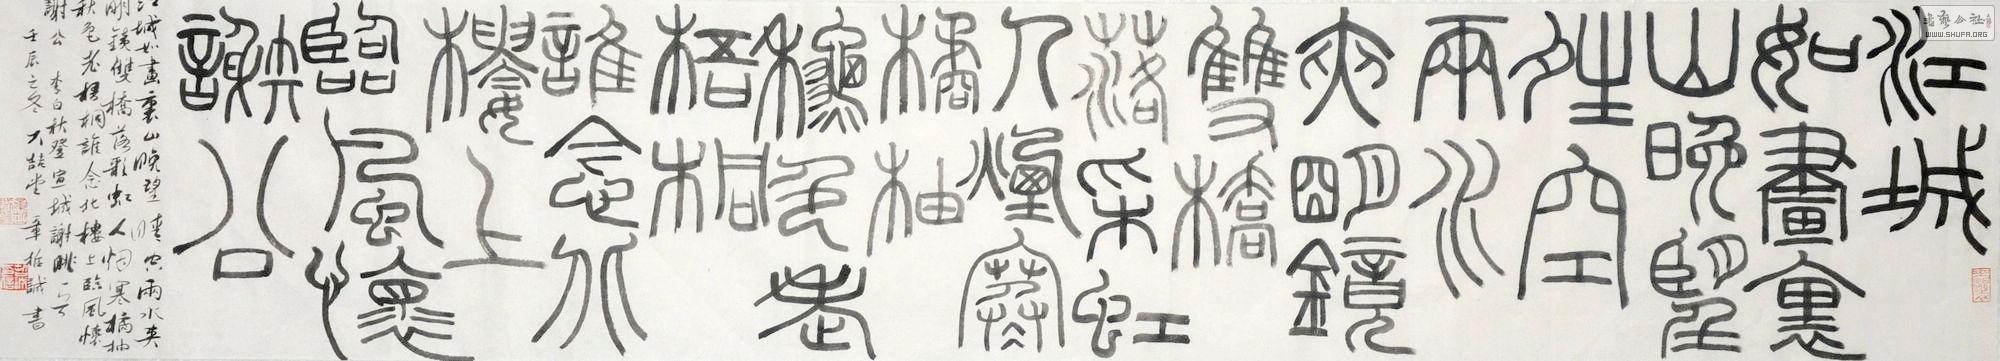 江城
如畫裏
山晚望
夝空
兩水
夾明鏡
雙橋
落采虹
人煙寒
橘柚
秋色老
梧桐
誰念北
樓上
臨風懷
謝公
江城如畫裏山晚望晴空兩水夾
明鏡雙橋落彩虹人烟寒橘柚
秋色老梧桐誰念北樓上臨風懷
謝公 李白秋登宣城謝眺
壬辰之冬 書
書藝公社
WWW.SHUFA.ORG